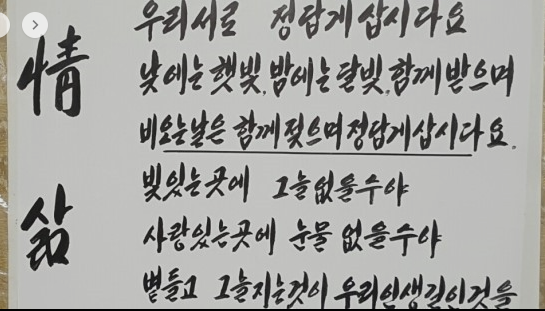 情
삶
우리서로 정답게 삽시다요
낮에는 햇빛, 밤에는 달빛, 함께 받으며
비오는날은 함께 젖으며 정답게 삽시다요.
빛있는 곳에 그늘 없을수야
사랑있는 곳에 눈물 없을수야
볕들고 그늘지는것이 우리인생길인것을